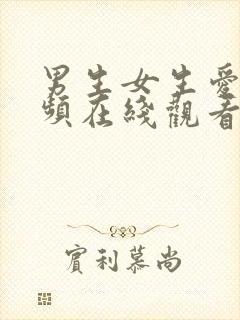 男生女生愛
頻在綫觀看
實利慕尚